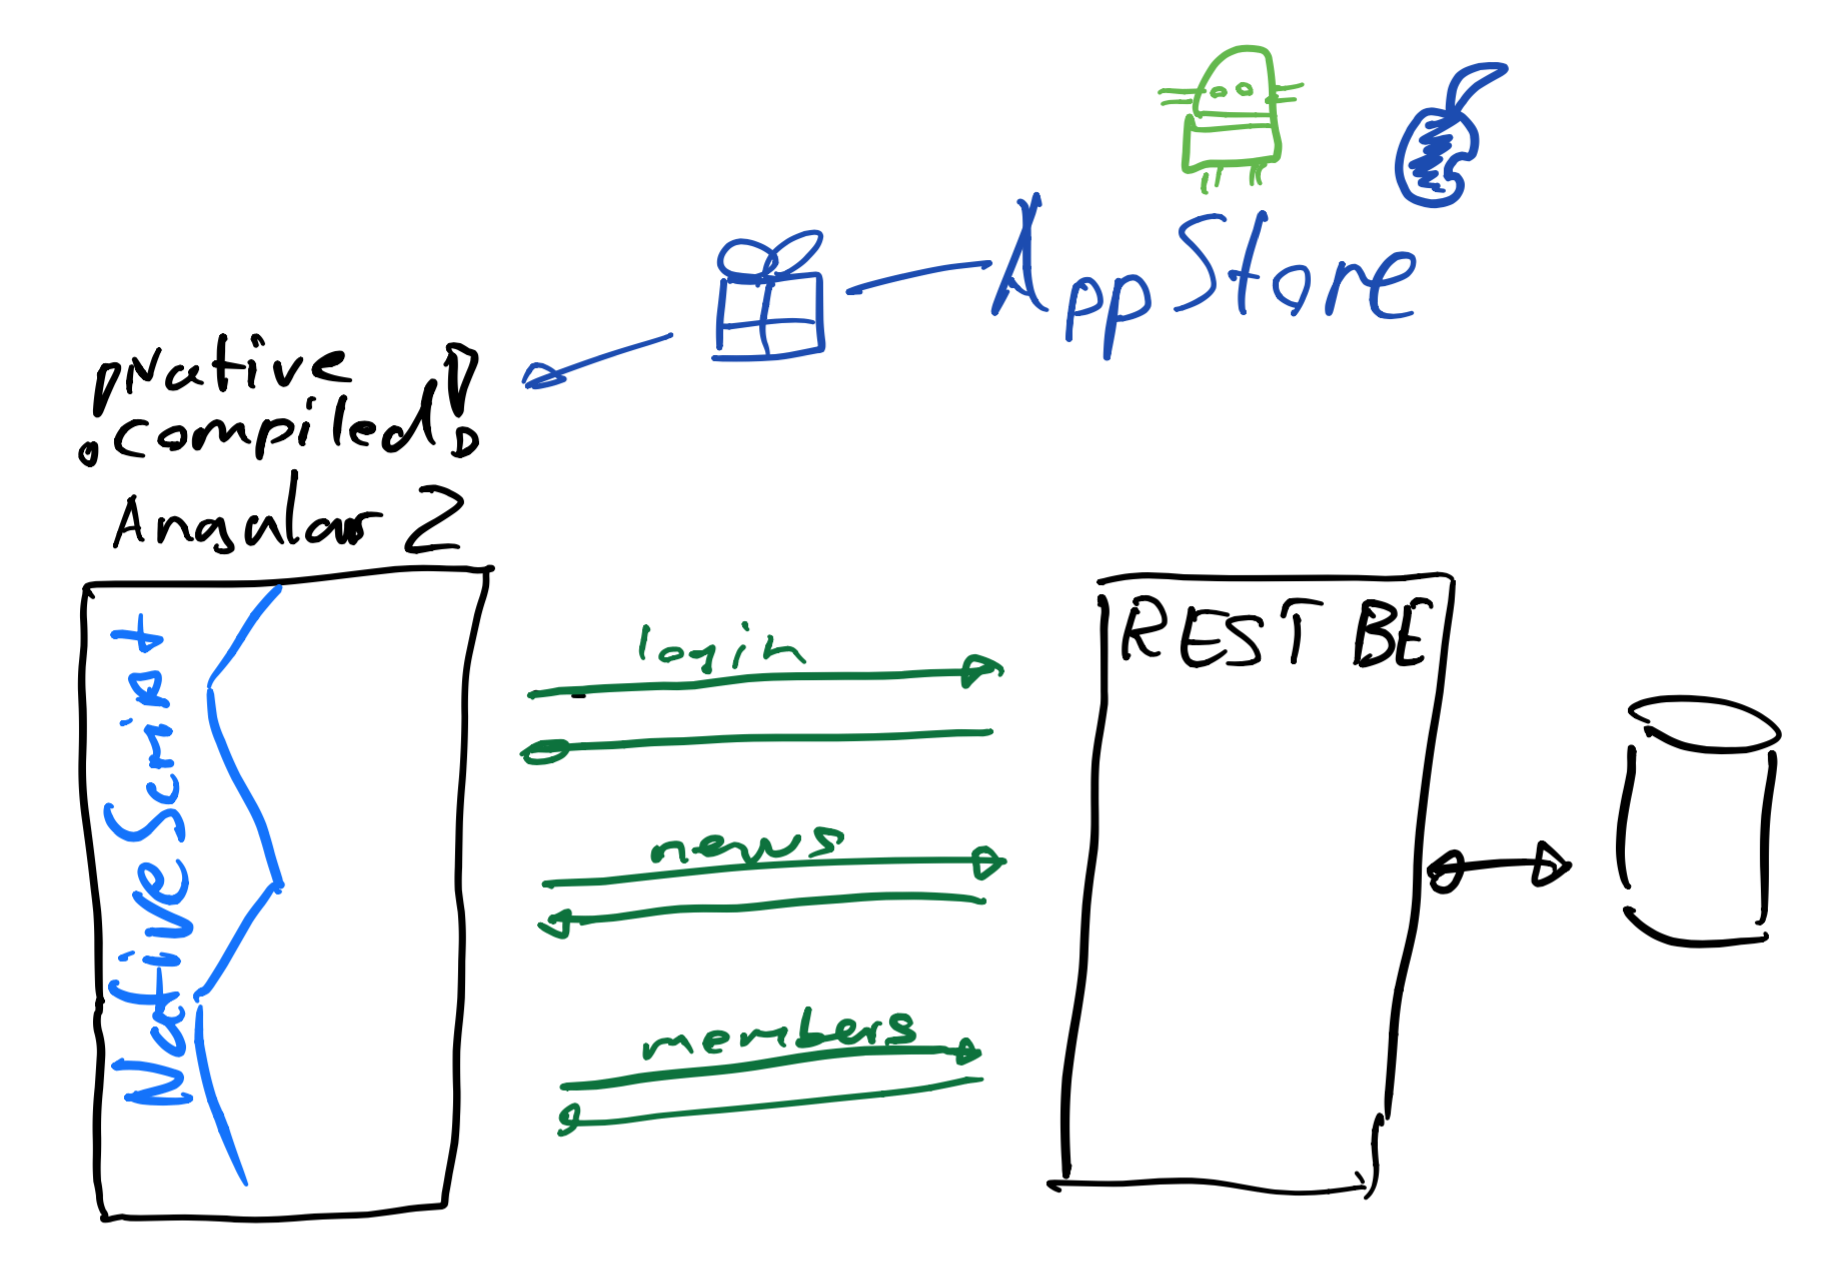 App Store
!Native
compiled!
Angular 2
NativeScript
login
news
members
REST BE